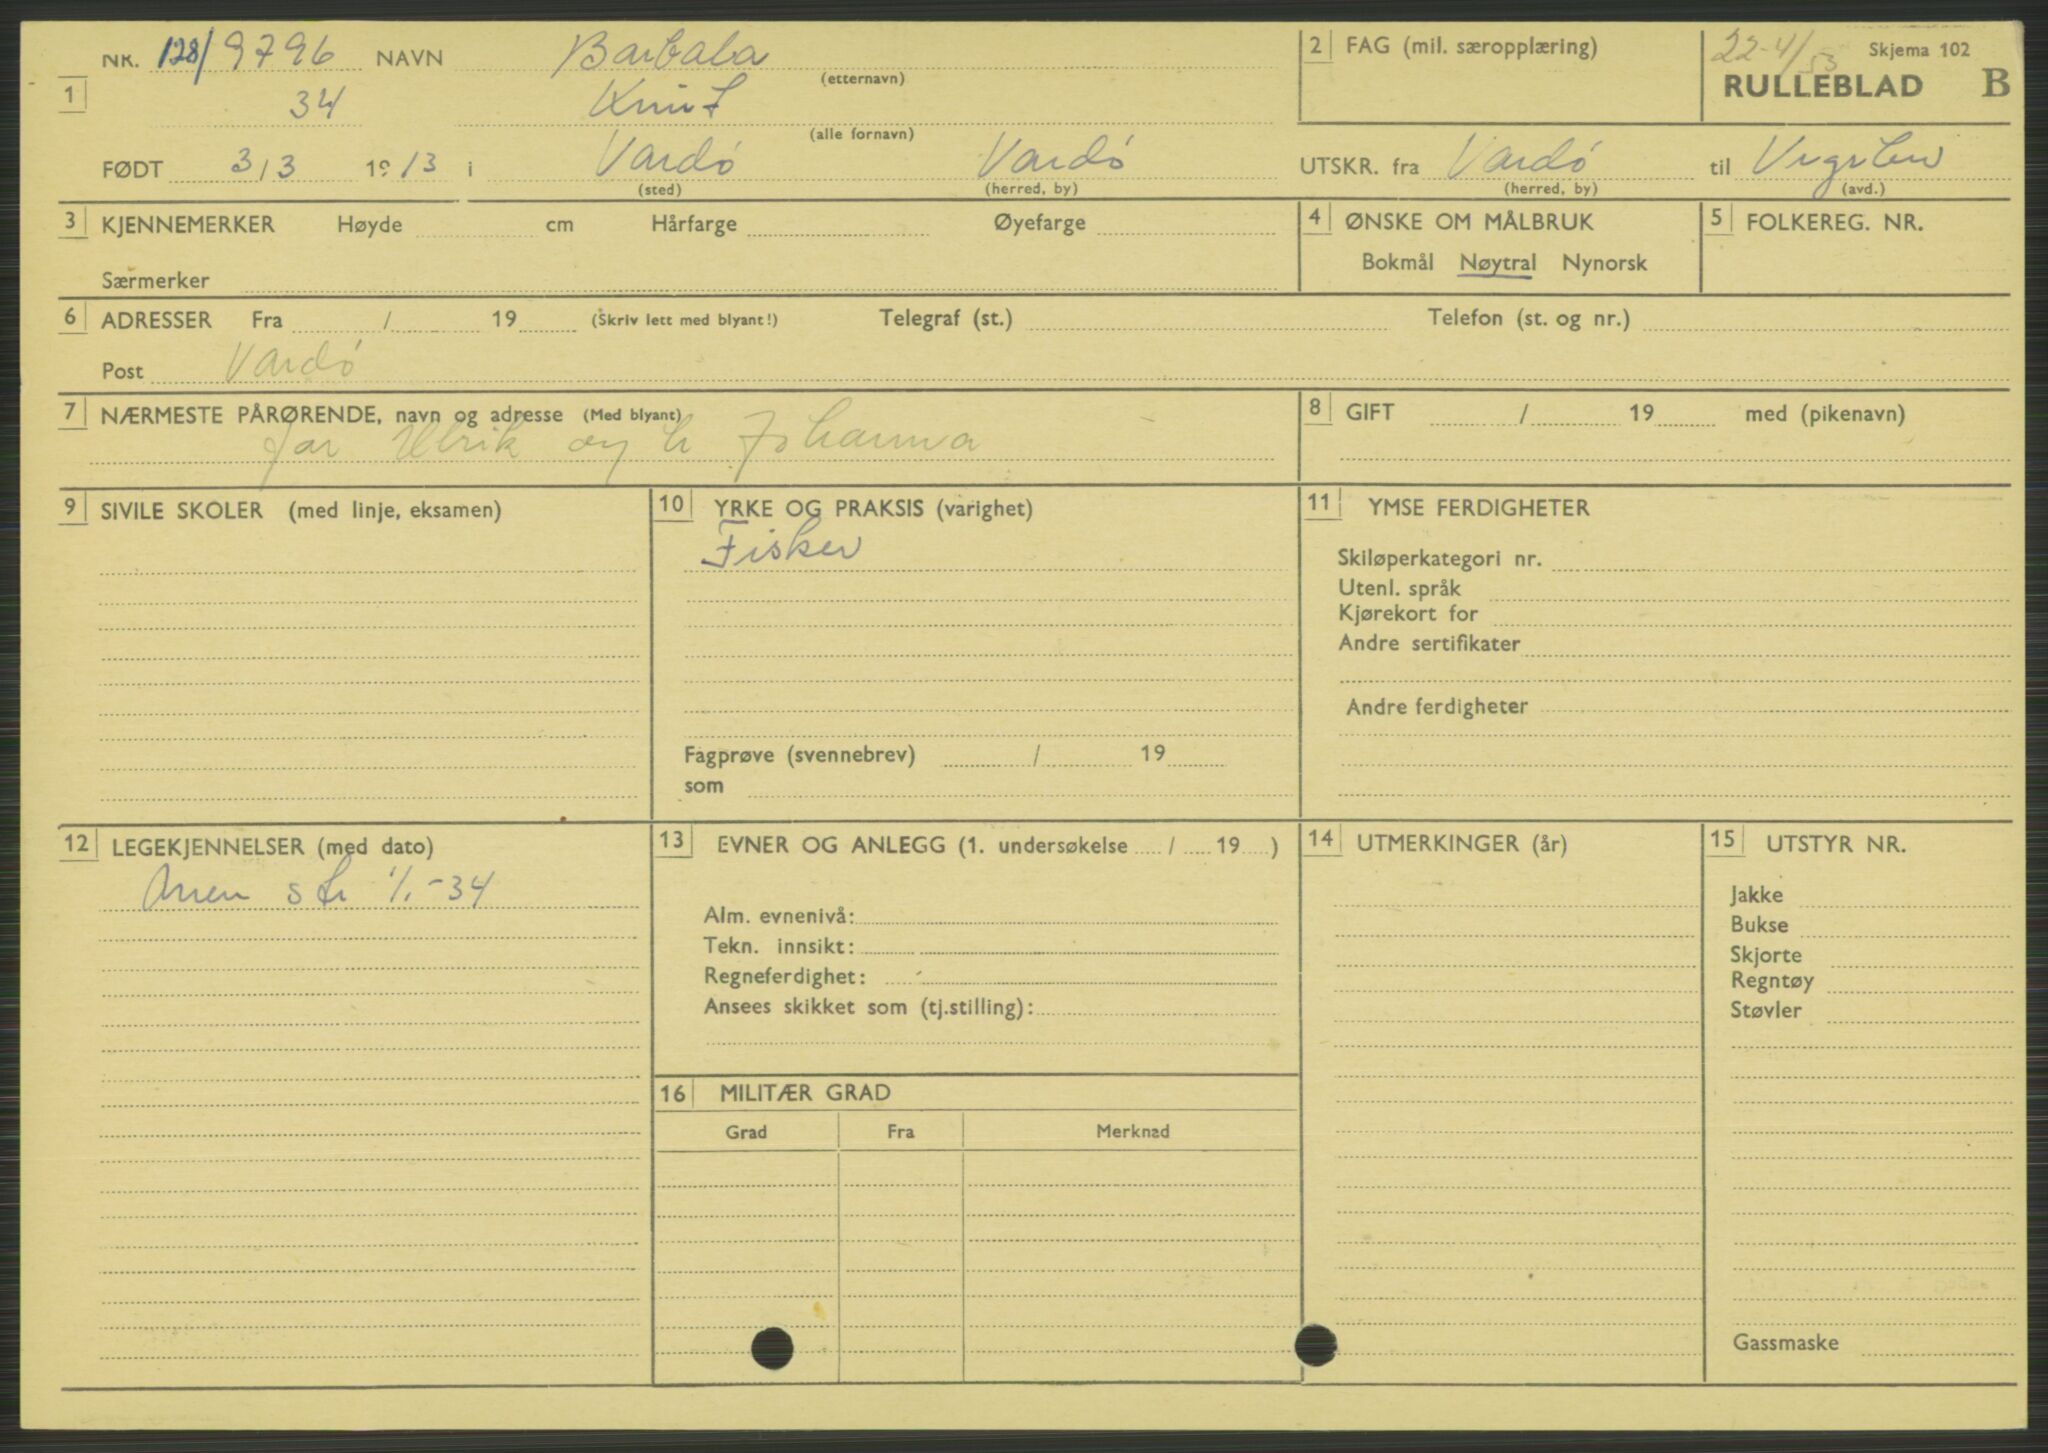 NR. 128/9796 NAVN Barbala (etternavn) 2 FAG (mil. særopplæring) 22-4/53 Skjema 102
1 34 Knut (alle fornavn) RULLEBLAD B
FØDT 3/3 1913 i Vardø (sted) Vardø (herred, by) UTSKR. fra Vardø (herred, by) til (avd.)
3 KJENNEMERKER Høyde cm Hårfarge Øyefarge 4 ØNSKE OM MÅLBRUK 5 FOLKEREG. NR.
Bokmål Nøytral Nynorsk
Særmerker
6 ADRESSER Fra / 19 (Skriv lett med blyant!) Telegraf (st.) Telefon (st. og nr.)
Post Vardø
7 NÆRMESTE PÅRØRENDE, navn og adresse (Med blyant) 8 GIFT / 19 med (pikenavn)
far Ulrik og h Johanna
9 SIVILE SKOLER (med linje, eksamen) 10 YRKE OG PRAKSIS (varighet) 11 YMSE FERDIGHETER
Fisker
Skiløperkategori nr.
Utenl. språk
Kjørekort for
Andre sertifikater
Andre ferdigheter
Fagprøve (svennebrev) / 19
som
12 LEGEKJENNELSER (med dato) 13 EVNER OG ANLEGG (1. undersøkelse / 19 ) 14 UTMERKINGER (år) 15 UTSTYR NR.
str 1/1-34
Jakke
Alm. evnenivå:
Bukse
Tekn. innsikt:
Skjorte
Regneferdighet:
Regntøy
Ansees skikket som (tj.stilling):
Støvler
16 MILITÆR GRAD
Grad Fra Merknad
Gassmaske